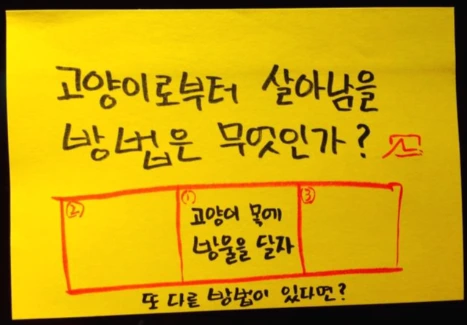 고양이로부터 살아남을
방법은 무엇인가?
② ① ③
고양이 목에
방울을 달자
또 다른 방법이 있다면?